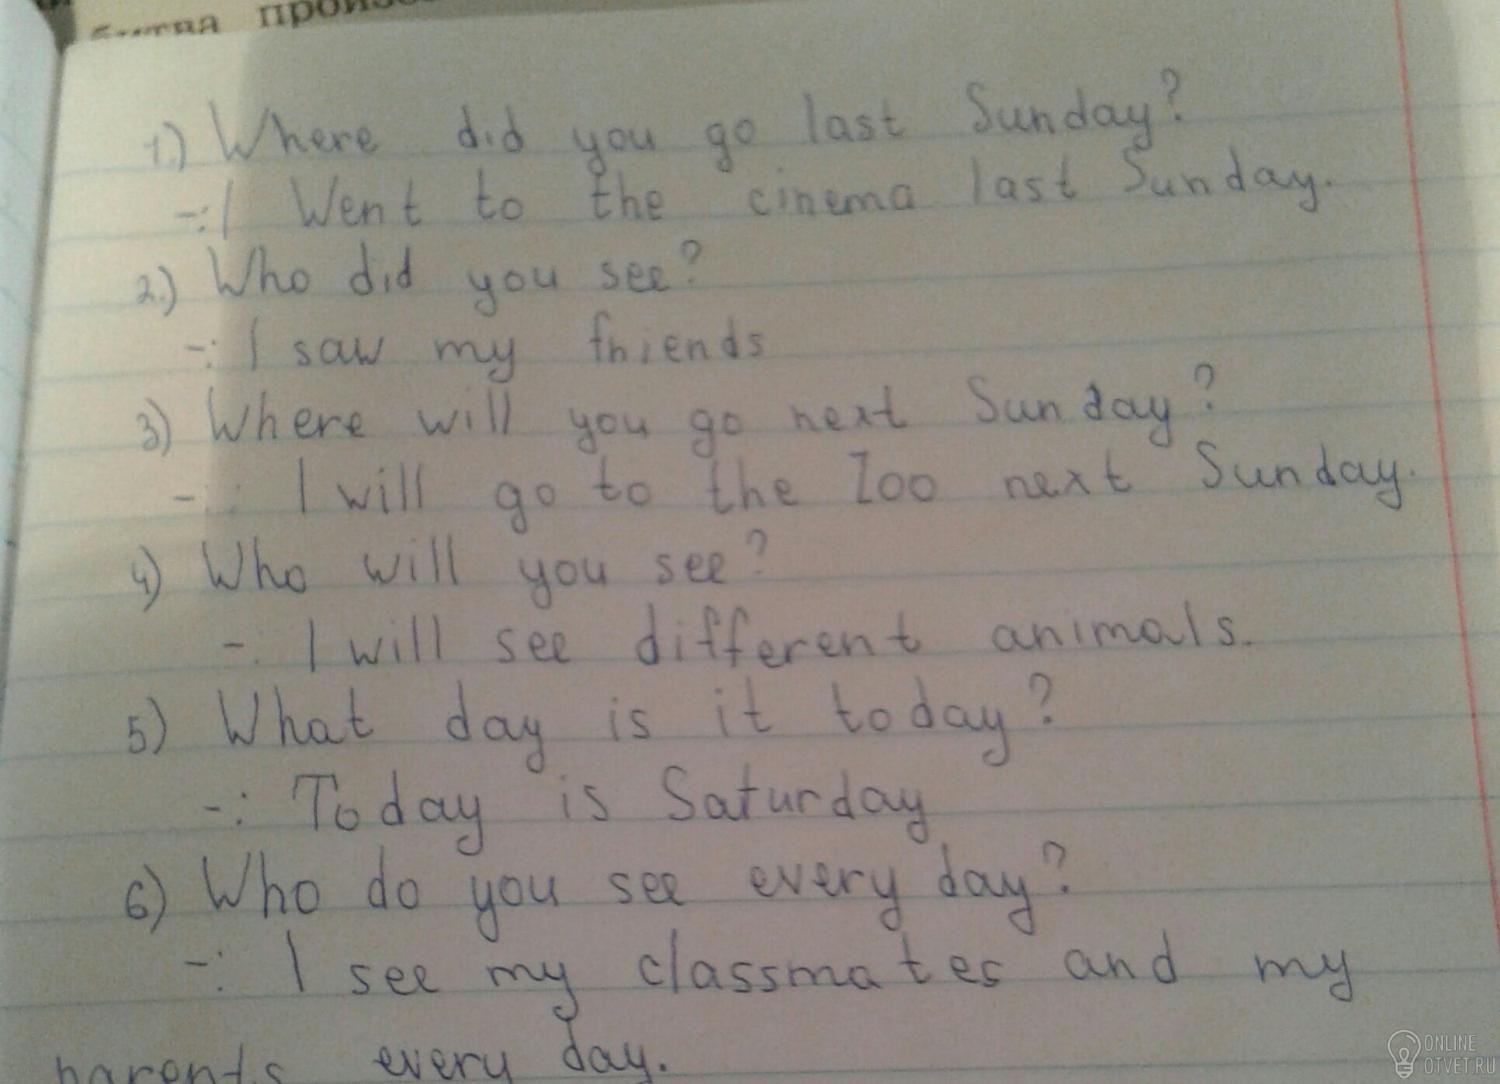 битва
1.) Where did you go last Sunday?
-: I Went to the cinema last Sunday.
2.) Who did you see?
-: I saw my friends
3) Where will you go next Sunday?
-: I will go to the Zoo next Sunday.
4) Who will you see?
-: I will see different animals.
5) What day is it today?
-: Today is Saturday
6) Who do you see every day?
-: I see my classmates and my
parents every day.
ONLINE
OTVET.RU